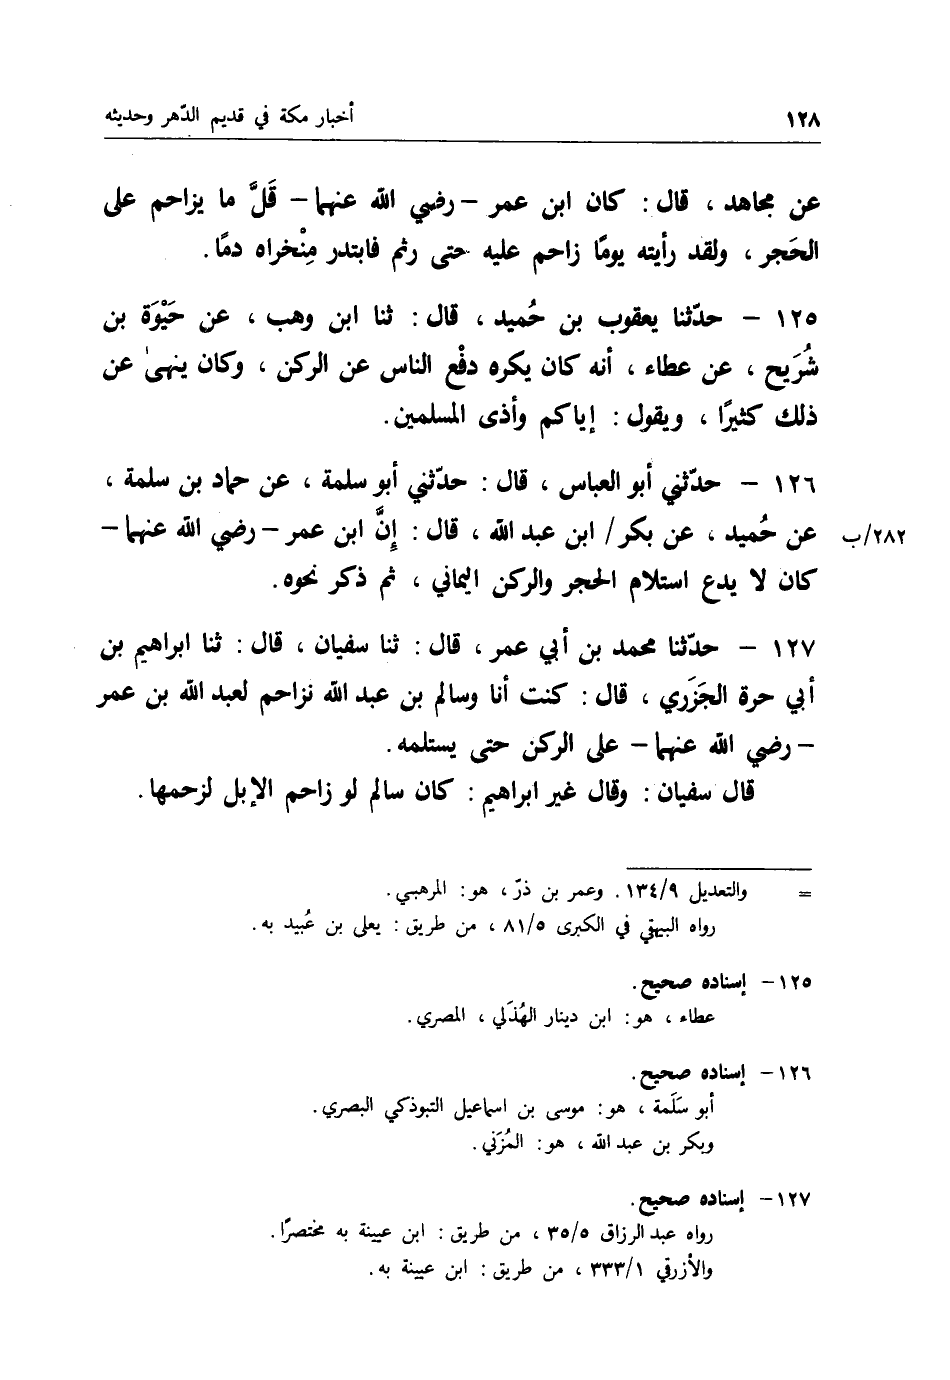 ١٢٨ أخبار مكة في قديم الدّهر وحديثه
عن مجاهد ، قال : كان ابن عمر – رضي الله عنهما – قَلَّ ما يزاحم على
الحَجر ، ولقد رأيته يومًا زاحم عليه حتى رثم فابتدر مِنْخراه دمًا .
١٢٥ – حدّثنا يعقوب بن حُميد ، قال : ثنا ابن وهب ، عن حَيْوَة بن
شُرَيح ، عن عطاء ، أنه كان يكره دفْع الناس عن الركن ، وكان ينهىٰ عن
ذلك كثيرًا ، ويقول : إياكم وأذى المسلمين .
١٢٦ – حدّثني أبو العباس ، قال : حدّثني أبو سلمة ، عن حماد بن سلمة ،
عن حُميد ، عن بكر / ابن عبد الله ، قال : إنَّ ابن عمر – رضي الله عنهما – ٢٨٢/ب
كان لا يدع استلام الحجر والركن اليماني ، ثم ذكر نحوه .
١٢٧ – حدّثنا محمد بن أبي عمر ، قال : ثنا سفيان ، قال : ثنا ابراهيم بن
أبي حرة الجَزَري ، قال : كنت أنا وسالم بن عبد الله نزاحم لعبد الله بن عمر
– رضي الله عنهما – على الركن حتى يستلمه .
قال سفيان : وقال غير ابراهيم : كان سالم لو زاحم الإبل لزحمها .
= والتعديل ١٣٤/٩ . وعمر بن ذرّ ، هو : المرهبي .
رواه البيهقي في الكبرى ٨١/٥ ، من طريق : يعلى بن عُبيد به .
١٢٥ – إسناده صحيح .
عطاء ، هو : ابن دينار الهُذَلي ، المصري .
١٢٦ – إسناده صحيح .
أبو سَلَمة ، هو : موسى بن اسماعيل التبوذكي البصري .
وبكر بن عبد الله ، هو : المُزَني .
١٢٧ – إسناده صحيح .
رواه عبد الرزاق ٣٥/٥ ، من طريق : ابن عيينة به مختصرًا .
والأزرقي ٣٣٣/١ ، من طريق : ابن عيينة به .